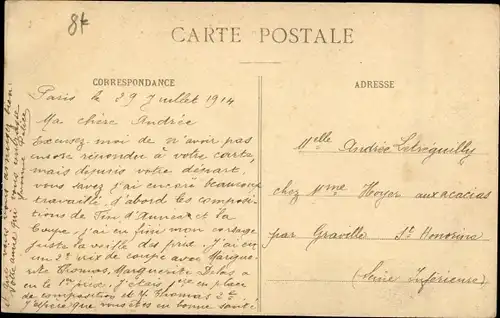 8f
CARTE POSTALE
CORRESPONDANCE
ADRESSE
Paris le 29 Juillet 1914
Ma chère Andrée
Excusez moi de n'avoir pas
encore répondu à votre carte,
mais depuis votre départ,
vous savez j'ai encore beaucoup
travaillé. D'abord les compo-
sitions de Fin d'Année et la
Coupe. J'ai en fini mon corsage
juste la veille des prix. J'ai eu
un 2e prix de coupe avec Margue-
rite Thomas, Marguerite Delas a
eu le 1er prix. J'étais 1ère en place
de composition et Y. Thomas 2e
J'espère que vous êtes en bonne santé
Votre amie qui vous embrasse
Melle Andrée Létréguilly
chez Mme Hoyer aux acacias
par Graville Ste Honorine
(Seine Inférieure)